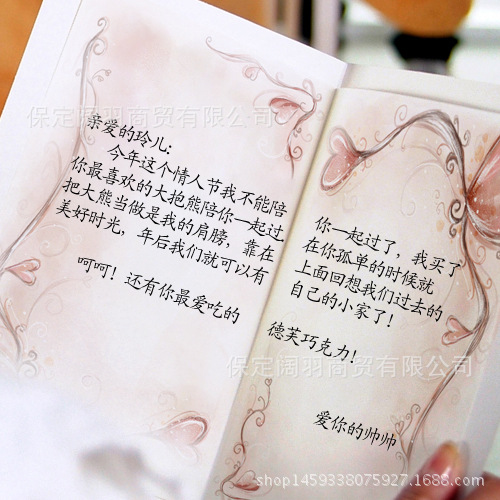 保定阔羽商贸有限公司
亲爱的玲儿:
今年这个情人节我不能陪
你一起过了，我买了
你最喜欢的大抱熊陪你一起过
在你孤单的时候就
把大熊当做是我的肩膀，靠在
上面回想我们过去的
美好时光，年后我们就可以有
自己的小家了！
呵呵！还有你最爱吃的
德芙巧克力！
爱你的帅帅
保定阔羽商贸有限公司
shop1459338075927.1688.com